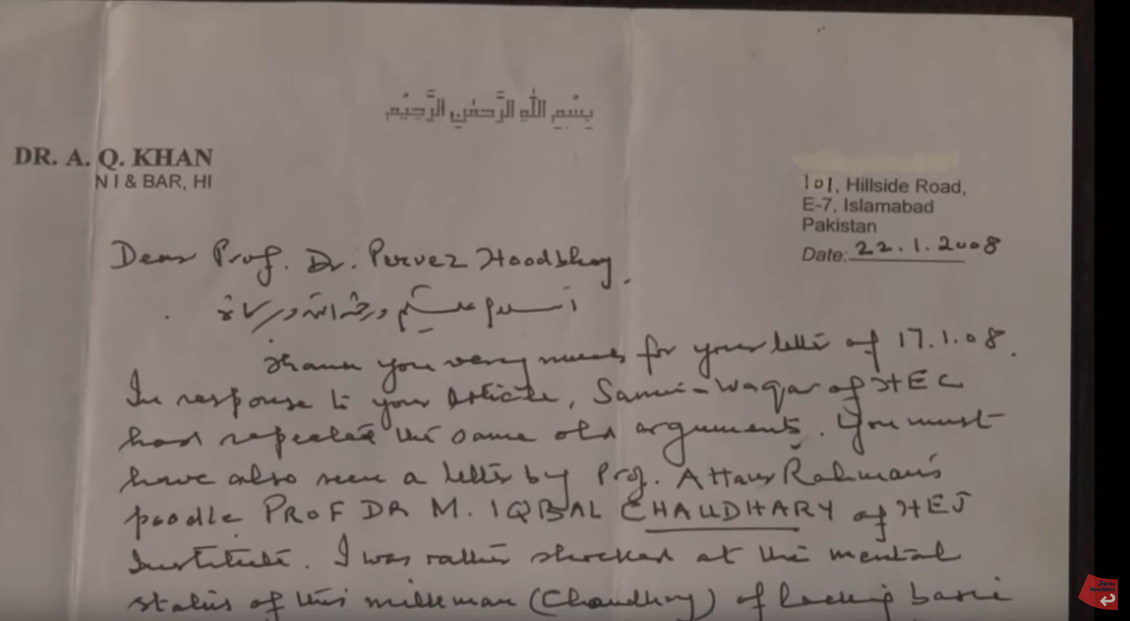 بِسْمِ اللهِ الرَّحْمٰنِ الرَّحِيْمِ
DR. A. Q. KHAN
N I & BAR, HI
101, Hillside Road,
E-7, Islamabad
Pakistan
Date: 22.1.2008
Dear Prof. Dr. Pervez Hoodbhoy.
السلام علیکم ورحمۃ اللہ وبرکاتہ
Thank you very much for your letter of 17.1.08.
In response to your article, Sami-Waqar of HEC
had repeated the same old arguments. You must
have also seen a letter by Prof. Attaur Rahman's
poodle PROF DR M. IQBAL CHAUDHARY of HEJ
Institute. I was rather shocked at the mental
status of this milkman (Chaudhry) of lacking basic